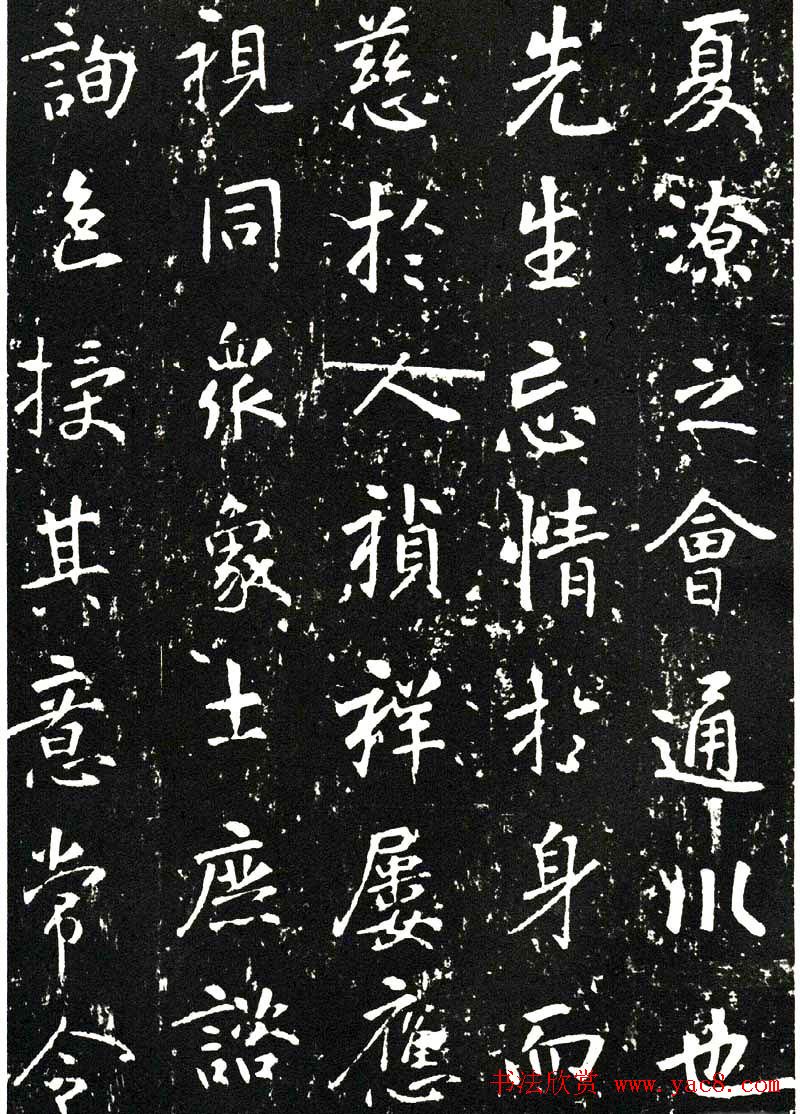 夏潦之會通川也
先生忘情於身而
慈於人禎祥屢應
視同衆象士庶諮
詢色授其意常令
书法欣赏 www.yac8.com